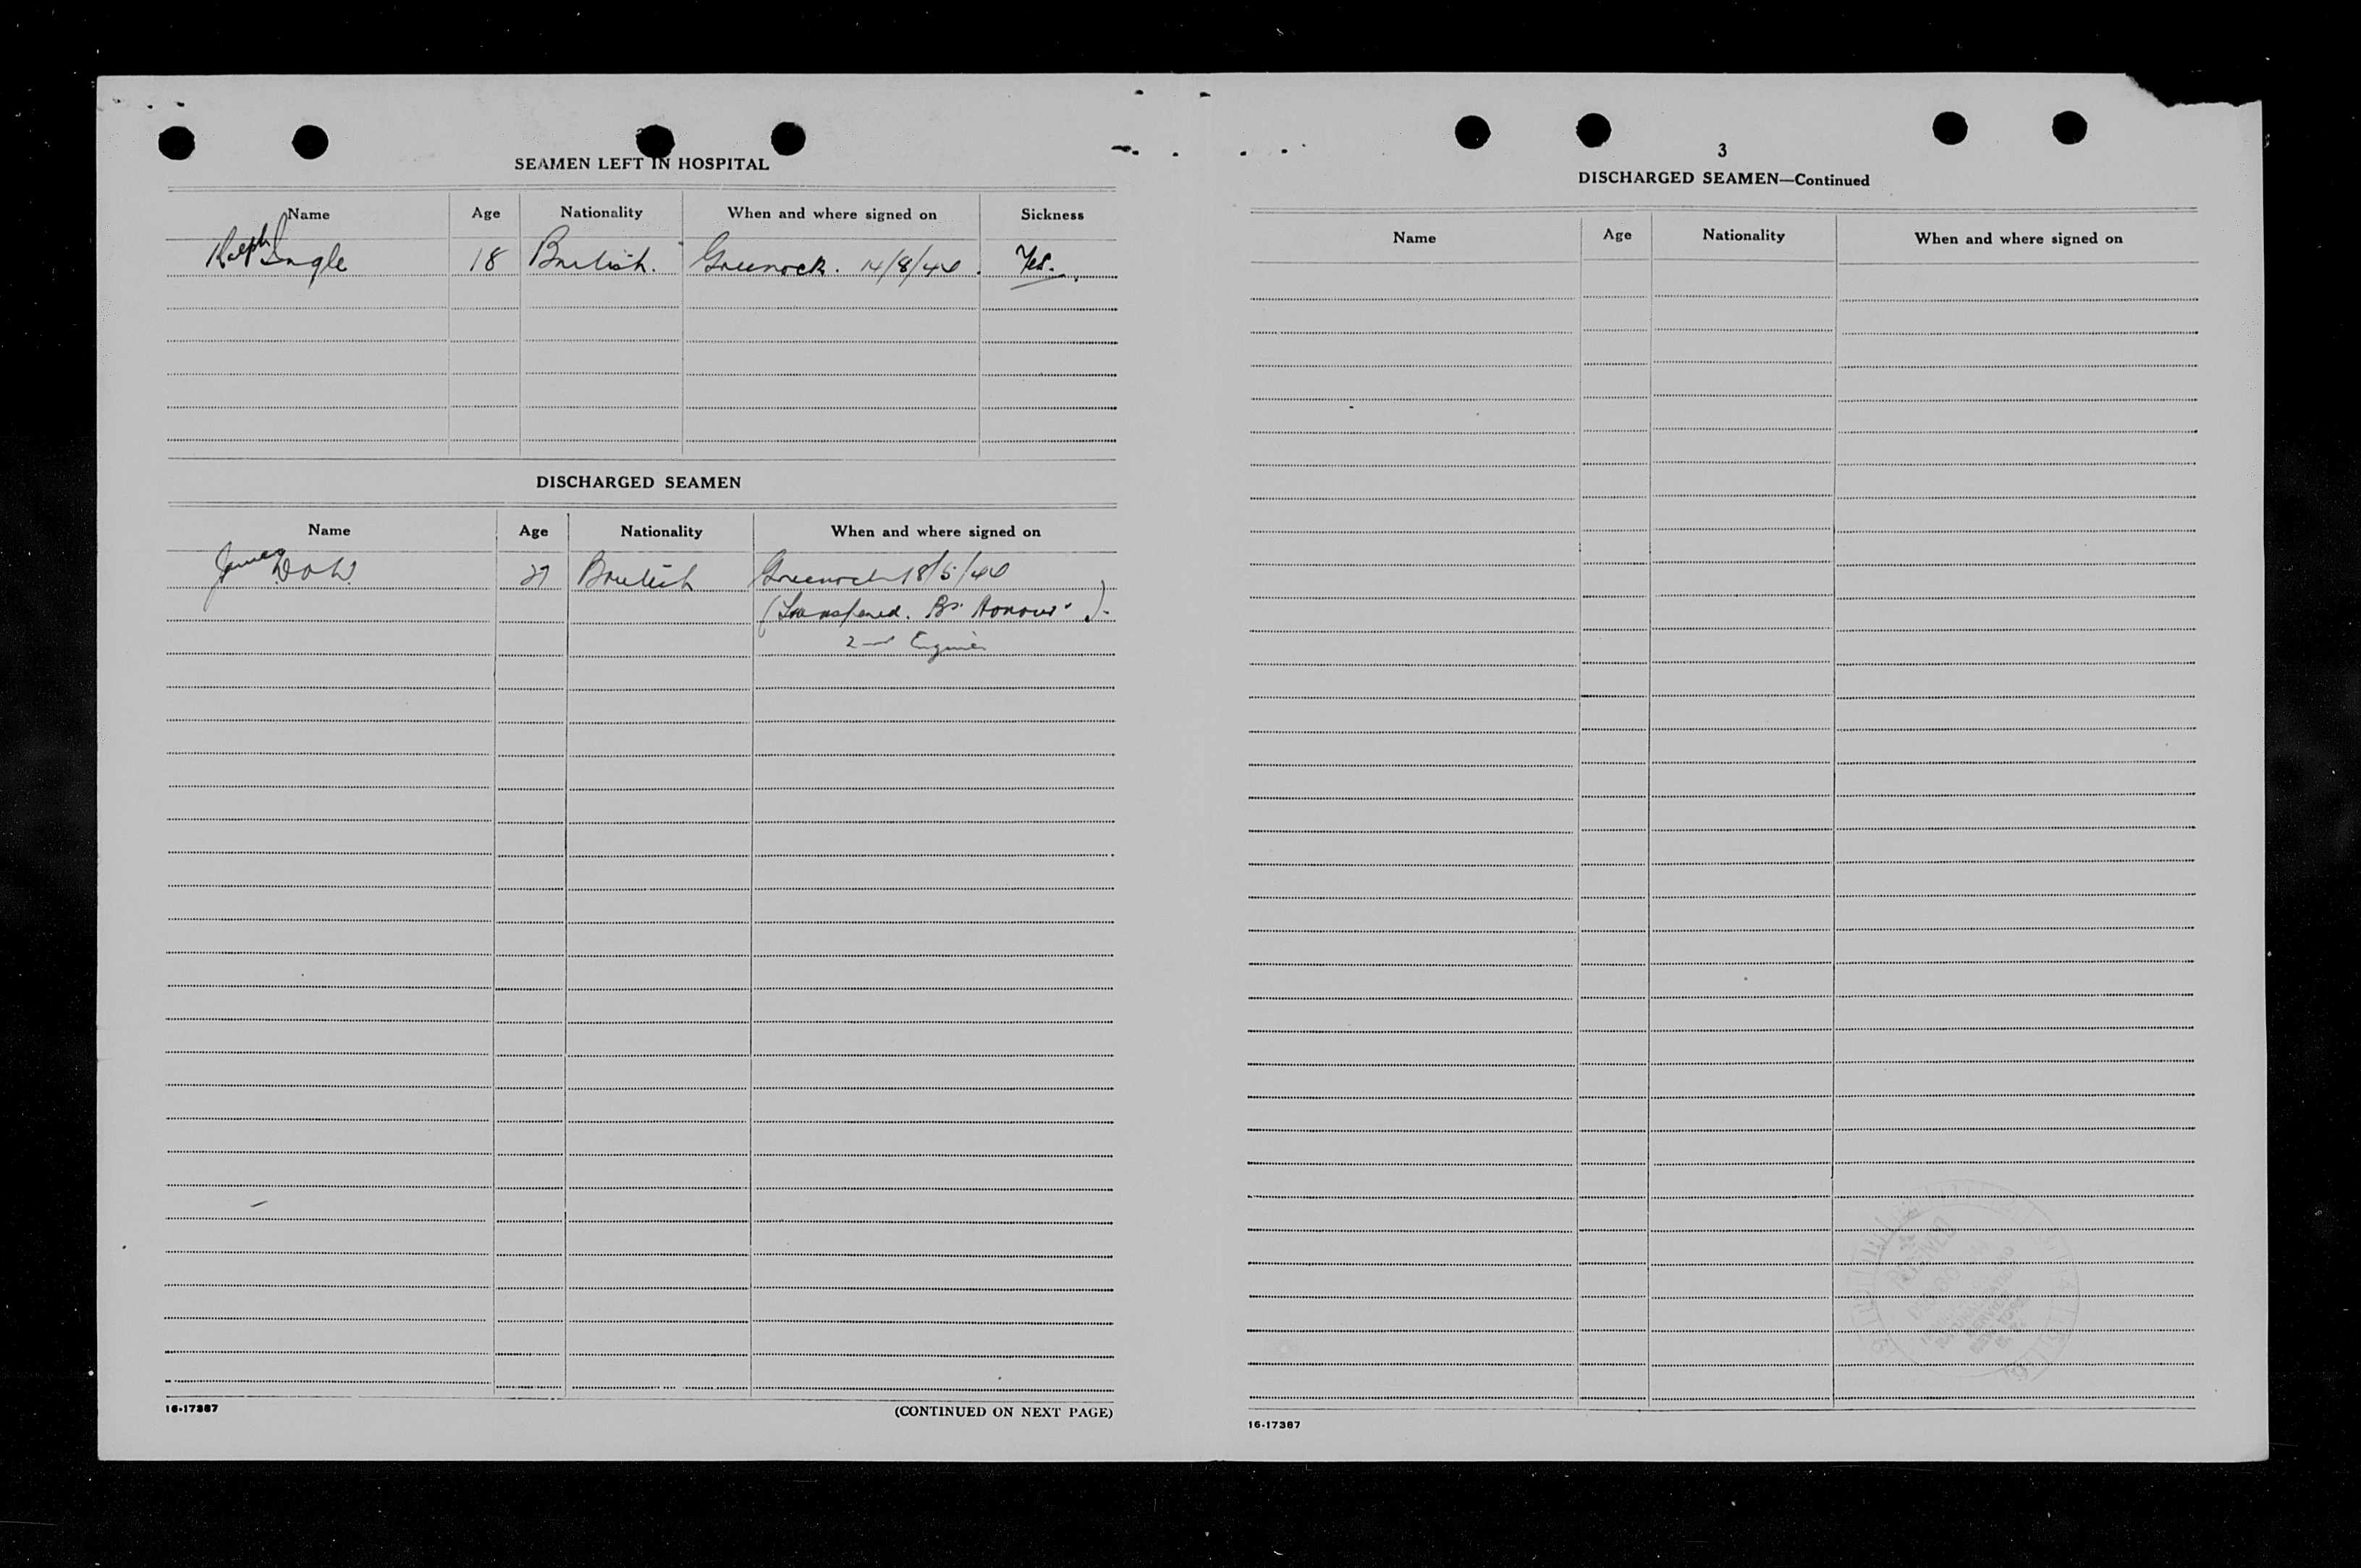 SEAMEN LEFT IN HOSPITAL
Name Age Nationality When and where signed on Sickness
Ralph Ingle 18 British. Greenock. 14/8/44. Yes.
DISCHARGED SEAMEN
Name Age Nationality When and where signed on
James 27 British Greenock 18/5/44
(Transfered. Br. Honour.)
2nd Engineer
16-17387
(CONTINUED ON NEXT PAGE)
3
DISCHARGED SEAMEN—Continued
Name Age Nationality When and where signed on
RECEIVED
16-17387